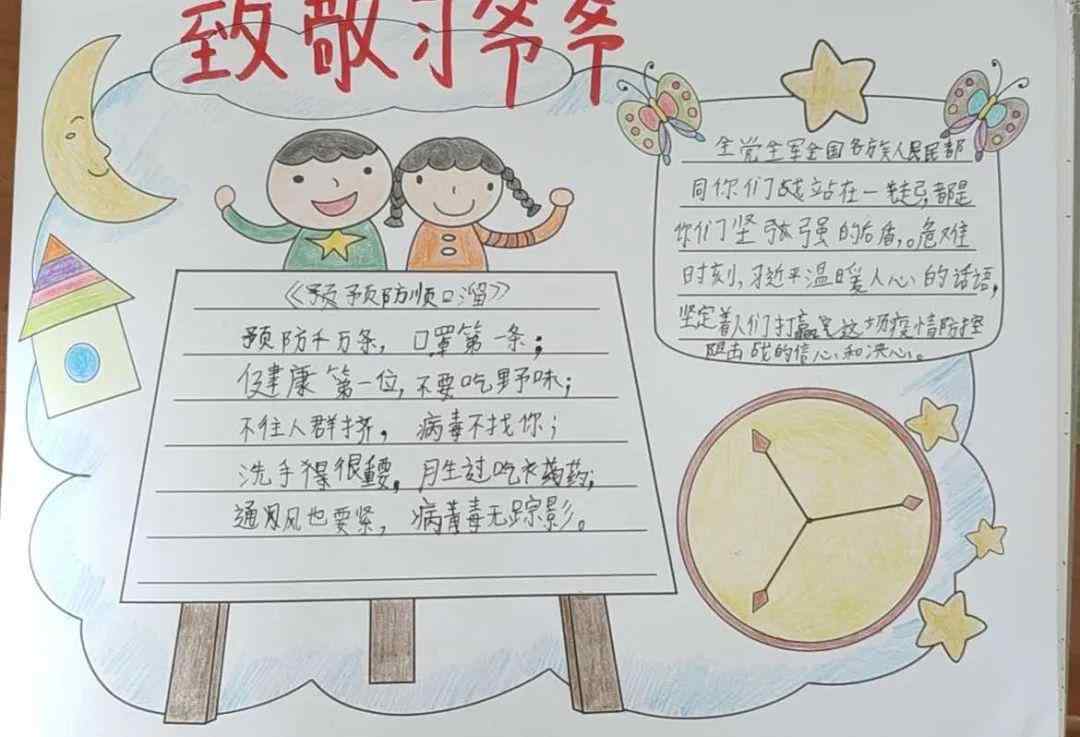 致敬习爷爷
《预防顺口溜》
预防千万条，口罩第一条；
健康第一位，不要吃野味；
不往人群挤，病毒不找你；
洗手得很重要，胜过吃药；
通风也要紧，病毒无踪影。
全党全军全国各族人民都
同你们战站在一起，都是
你们坚强的后盾。危难
时刻，习近平温暖人心的话语，
坚定着人们打赢这场疫情防控
阻击战的信心和决心。